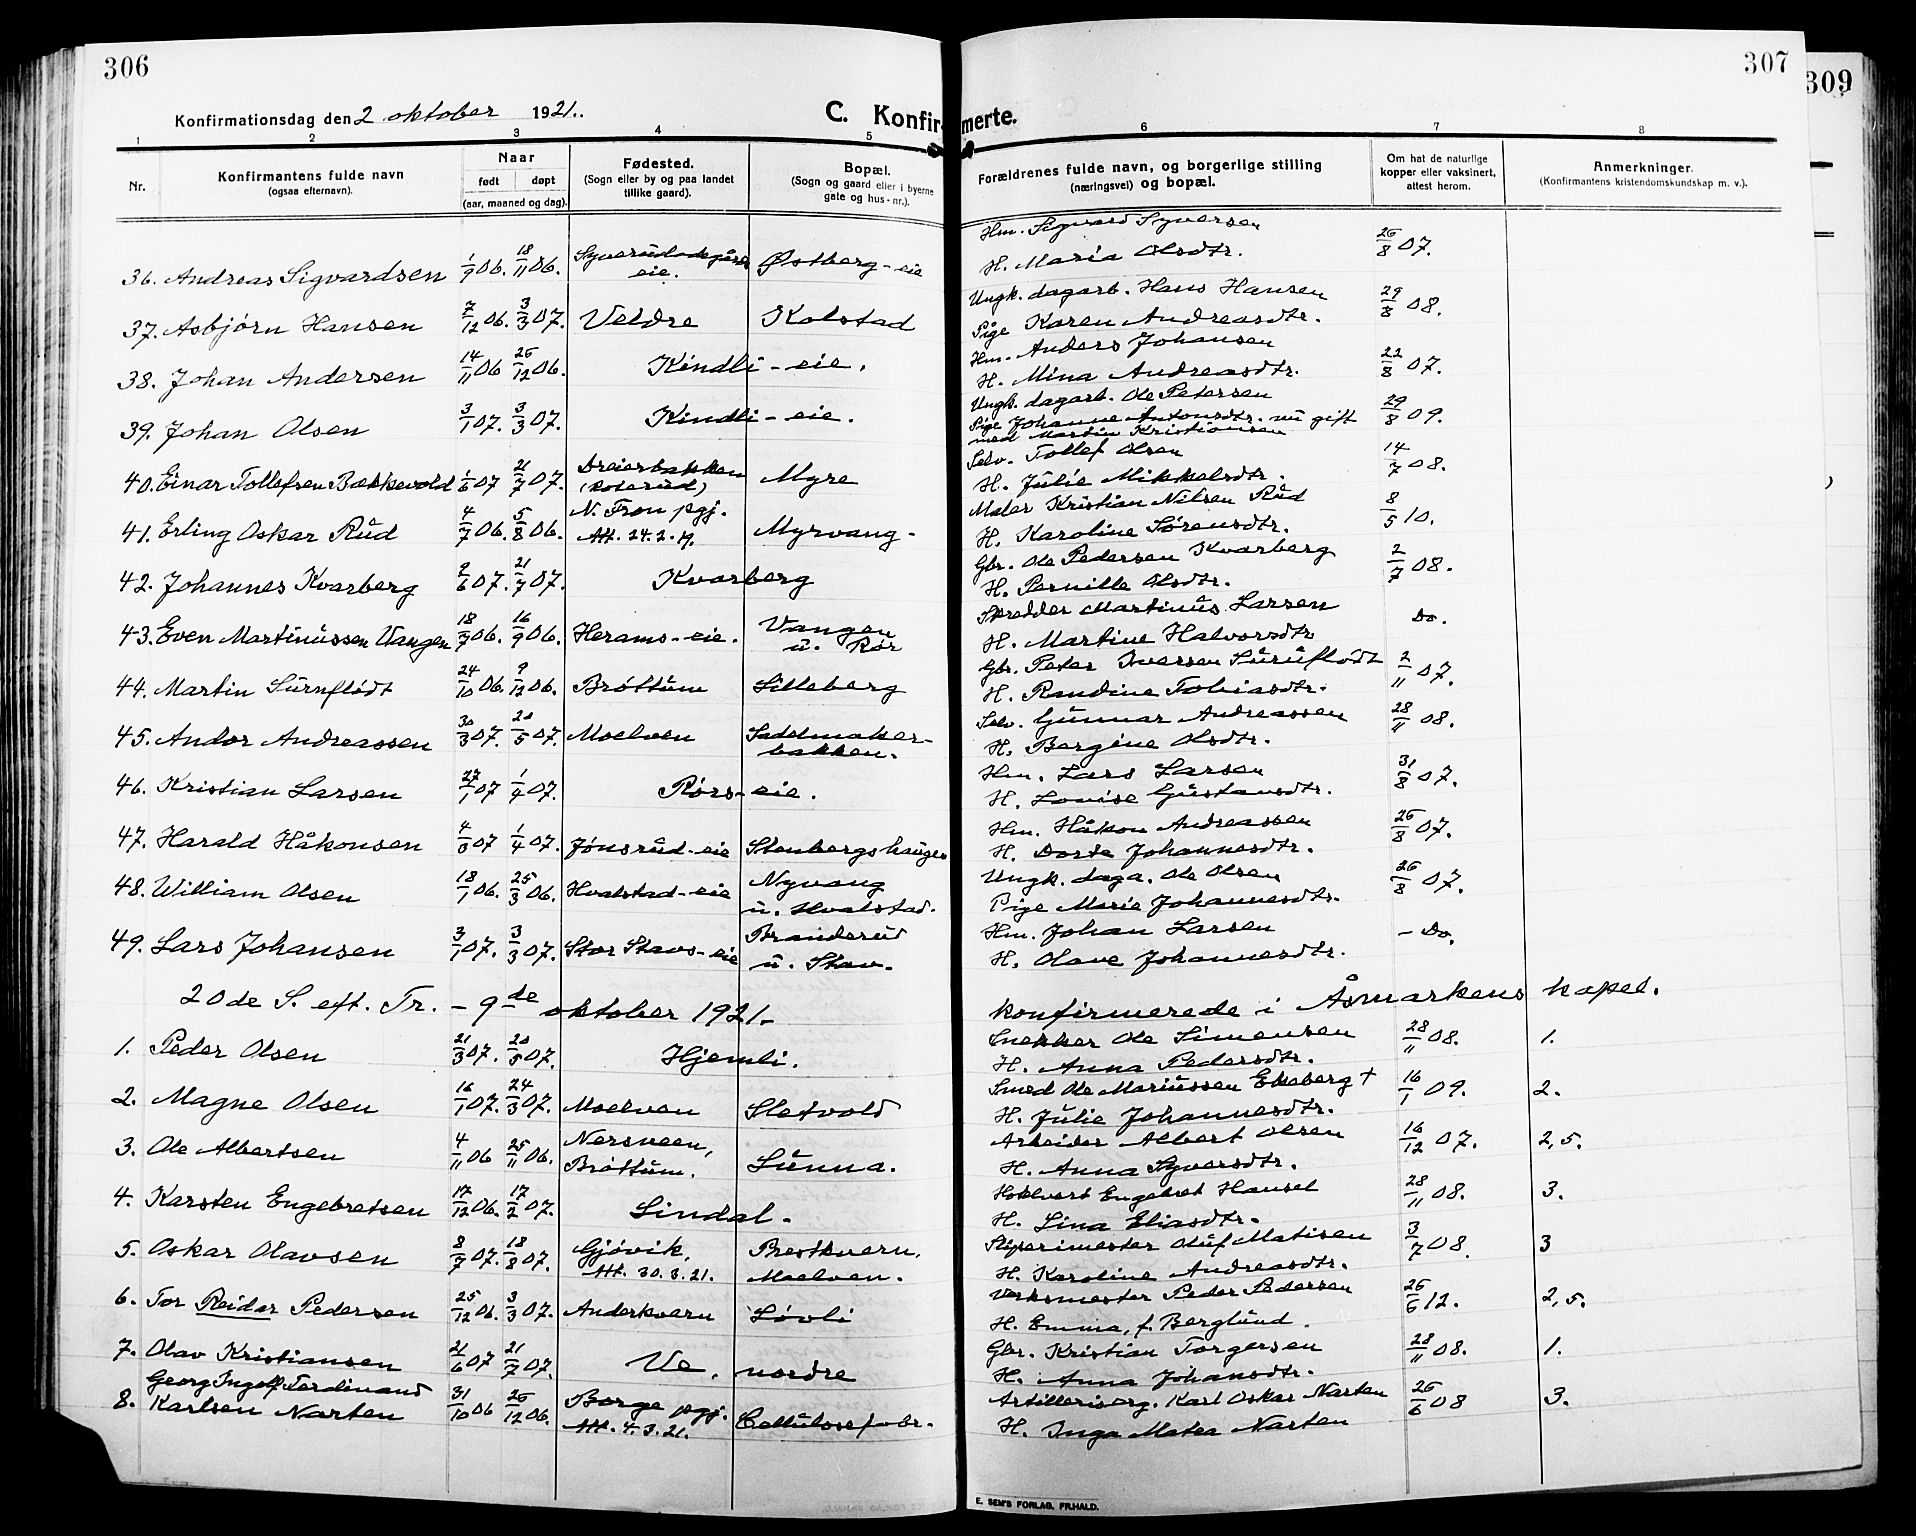 306
307
309
Konfirmationsdag den 2 oktober 1921.
C. Konfirmerte.
1 2 3 4 5 6 7 8
Nr.
Konfirmantens fulde navn
(ogsaa efternavn).
Naar
født døpt
(aar, maaned og dag).
Fødested.
(Sogn eller by og paa landet
tillike gaard).
Bopæl.
(Sogn og gaard eller i byerne
gate og hus-nr.).
Forældrenes fulde navn, og borgerlige stilling
(næringsvei) og bopæl.
Om hat de naturlige
kopper eller vaksinert,
attest herom.
Anmerkninger.
(Konfirmantens kristendomskundskap m. v.).
36. Andreas Sigvardsen 1/9 06. 18/11 06. eie. Østberg-eie
Hm. Sigvard Syversen
H. Maria Olsdtr. 26/8 07.
37. Asbjørn Hansen 7/12 06. 3/3 07. Veldre Kolstad
Ungk. dagarb. Hans Hansen
Pige Karen Andreasdtr. 29/8 08.
38. Johan Andersen 14/11 06 26/12 06. Kindli-eie.
Hm. Anders Johansen
H. Mina Andreasdtr. 22/8 07.
39. Johan Olsen 3/1 07. 3/3 07. Kindli-eie.
Ungk. dagarb. Ole Petersen
Pige Johanne Antonsdtr. nu gift
med Martin Kristiansen 29/8 09.
40. Einar Tollefsen Bækkevold 1/6 07 21/7 07. Dreierbakken
(Roterud) Myre
Selv. Tollef Olsen
H. Julie Mikkelsdtr. 14/7 08.
41. Erling Oskar Rud 4/7 06. 5/8 06. N. Fron pgj.
Att. 24.2.19. Myrvang-
Maler Kristian Nilsen Rud
H. Karoline Sørensdtr. 8/5 10.
42. Johannes Kvarberg 2/6 07. 21/7 07. Kvarberg
Gbr. Ole Pedersen Kvarberg
H. Pernille Olsdtr. 2/7 08.
43. Even Martinussen Vangen 18/7 06. 16/9 06. Herams-eie. Vangen
u. Rør
Skredder Martinus Larsen
H. Martine Halvorsdtr Do.
44. Martin Suruflødt 24/10 06. 9/12 06. Brøttum Lilleberg
Gbr. Peter Iversen Suruflødt
H. Randine Tobiasdtr. 2/11 07.
45. Andor Andreassen 30/3 07. 20/5 07. Moelven Sadelmaker-
bakken.
Selv. Gunnar Andreassen
H. Bergine Olsdtr. 28/11 08.
46. Kristian Larsen 27/1 07 1/4 07. Rørs-eie.
Hm. Lars Larsen
H. Lovise Gustavsdtr. 31/8 07.
47. Harald Håkonsen 4/3 07 1/4 07. Jønsrud-eie Stenbergshaugen
Hm. Håkon Andreassen
H. Dorte Johannesdtr. 26/8 07.
48. William Olsen 18/1 06. 25/3 06. Hvalstad-eie Nyvang
u. Hvalstad.
Ungk. daga. Ole Olsen
Pige Marie Johannesdtr. 26/8 07.
49. Lars Johansen 3/1 07. 3/3 07. Stor Stavs-eie Branderud
u. Stav.
Hm. Johan Larsen
H. Olave Johannesdtr. - Do.
20de S. eft. Tr. - 9de oktober 1921. konfirmerede i Åsmarkens kapel.
1. Peder Olsen 21/3 07. 20/5 07. Hjemli.
Snekker Ole Simensen
H. Anna Pedersdtr. 28/11 08. 1.
2. Magne Olsen 16/1 07. 24/3 07. Moelven Sletvold
Smed Ole Mariussen Ekeberg +
H. Julie Johannesdtr. 16/1 09. 2.
3. Ole Albertsen 4/11 06 25/11 06. Nersveen,
Brøttum. Sunna.
Arbeider Albert Olsen
H. Anna Syversdtr. 16/12 07. 2, 5.
4. Karsten Engebretsen 17/12 06. 17/2 07. Lindal.
Hotelvert Engebret Hansel
H. Lina Eliasdtr. 28/11 08. 3.
5. Oskar Olavsen 8/7 07. 18/8 07. Gjøvik,
Att. 30.3.21. Prestkvern,
Moelven.
Sliperimester Oluf Matisen
H. Karoline Andreasdtr. 3/7 08. 3
6. Tor Reidar Pedersen 25/12 06. 3/3 07. Anderkvern Løvli
Verksmester Peder Pedersen
H. Emma, f. Berglund. 26/6 12. 2, 5.
7. Olav Kristiansen 21/6 07 21/7 07. Ve, nordre
Gbr. Kristian Torgersen
H. Anna Johansdtr. 28/11 08. 1.
8. Georg Ingolf Ferdinand
Karlsen Narten 31/10 06 26/12 06. Borge pgj.
Att. 4.3.21. Cellulosefabr.
Artillerisorg. Karl Oskar Narten
H. Inga Matea Narten 26/6 08 3.
E. SEM'S FORLAG, FR.HALD.